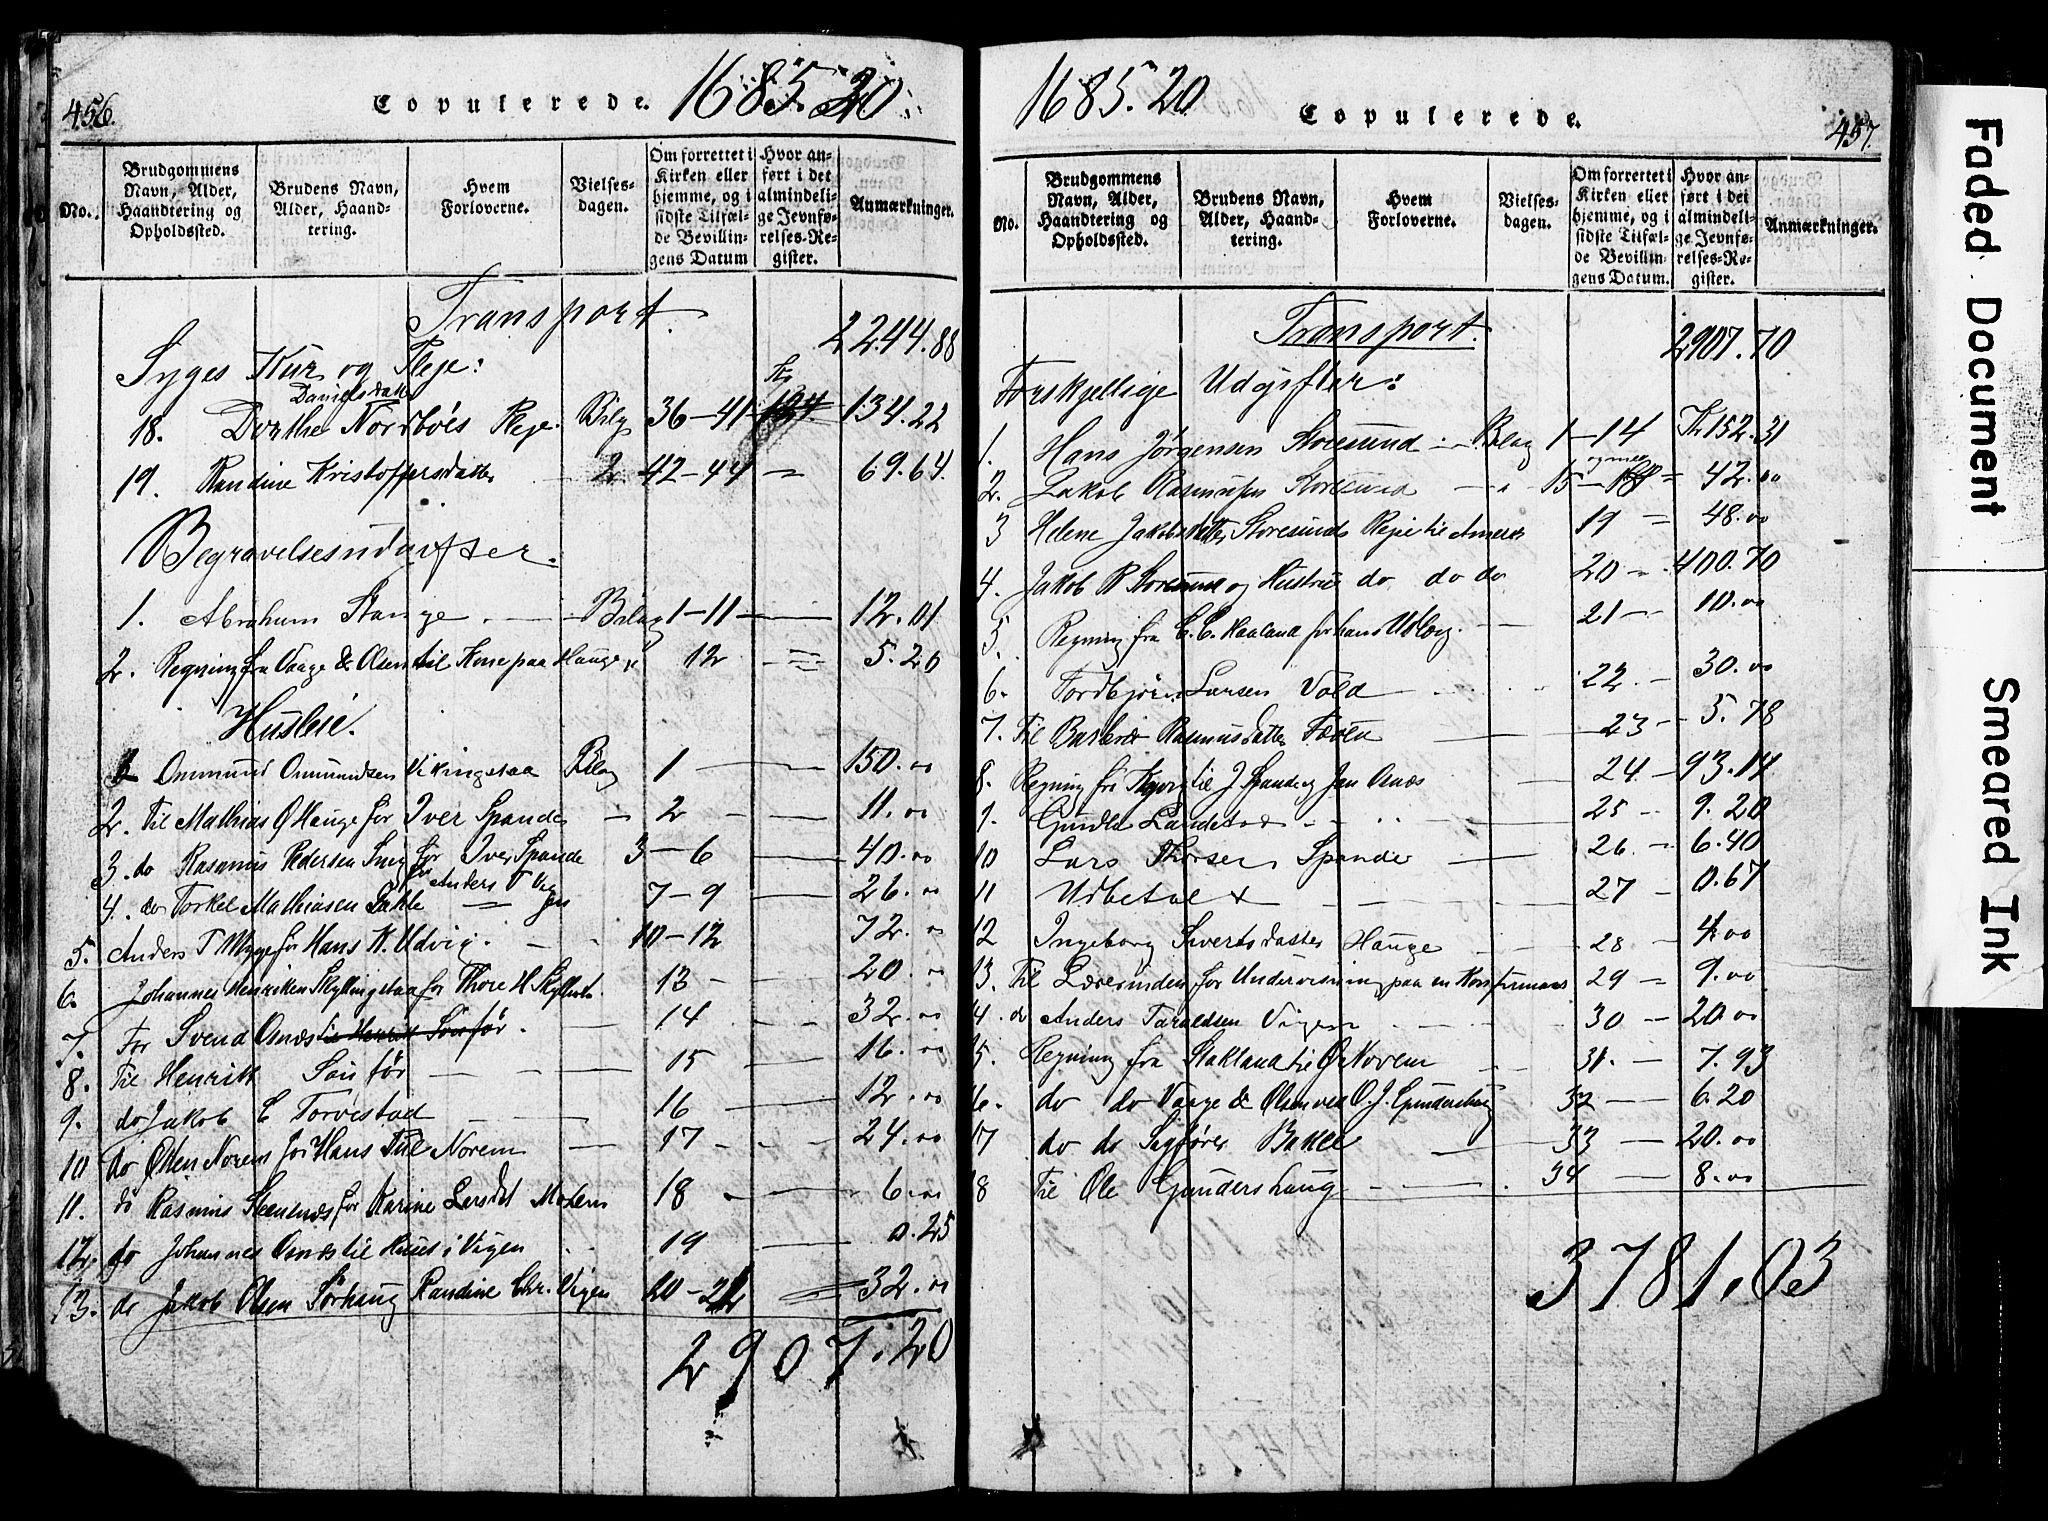 456. Copulerede. 1685.20
No. Brudgommens Navn, Alder, Haandtering og Opholdssted. Brudens Navn, Alder, Haandtering. Hvem Forloverne. Vielsesdagen. Om forrettet i Kirken eller hjemme, og i sidste Tilfælde Bevillingens Datum Hvor anført i det almindelige Jevnførelses-Register. Anmærkninger.
Transport. 2244.88
Syges Kur og Pleje:
Danielsdatter
18. Dorthe Nordbøes Pleje. Bilg 36-41 Kr 134.22
19. Randine Kristoffersdatter 42-44 = 69.64
Begravelsesudgifter.
1. Abraham Stange Bilag 1-11 12.01
2. Regning fra Vaage & Olsen til Kone paa Hauge 12 5.26
Husleie.
1 Ommund Ommundsen Vikingstaa Bilag 1 150.00
2. Til Mathias O Hauge for Iver Spande 2 11.00
3. do Rasmus Pedersen for Iver Spande 3-6 40.00
4. do Torkel Mathiasen Bakke for Anders T Vigen 7-9 26.00
5. Anders T Mygge for Hans K. Udvig. 10-12 72.00
6. Johannes Henriksen Skyllingstaa for Thore H Skyllst. 13 20.00
7. For Svend Osnes til Henrik Sørfør. 14 32.00
8. Til Henrik Sørfør 15 16.00
9. do Jakob E Torvestad 16 12.00
10 do Osten Norem for Hans Norem 17 24.00
11. do Rasmus Steensnes for Karine Larsdat Moksem 18 6.00
12. do Johannes Osnes til Huus i Vigen 19 0.25
13. do Jakob Olsen Sørhaug Randine Chr. Vigen 20-22 32.00
2907.20
1685.20 Copulerede. 457.
No. Brudgommens Navn, Alder, Haandtering og Opholdssted. Brudens Navn, Alder, Haandtering. Hvem Forloverne. Vielsesdagen. Om forrettet i Kirken eller hjemme, og i sidste Tilfælde Bevillingens Datum. Hvor anført i det almindelige Jevnførelses-Register. Anmærkninger.
Transport. 2907.70
Forskjellige Udgifter:
1. Hans Jørgensen Storesund Bilag 1-14 Kr 152.31
2. Jakob Rasmussen Storesund 15-18 = 42.00
3 Helene Jakobsdatter Storesund Rejse til Amerik 19 = 48.00
4. Jakob R Storesund og Hustrue do do do 20 - 400.70
5. Regning fra E.E. Haaland for Hans Udvig. 21 - 10.00
6. Tordbjørn Larsen Vold 22 - 30.00
7. Til Barbro Rasmusdatter Føven 23 - 5.78
8. Regning fra til J Spande og Jan Osnes 24. - 93.14
9. Gunda Landstad 25 - 9.20
10 Lars Thorsen Spande 26. - 6.40
11 Udbetalt 27 - 0.67
12 Ingeborg Sivertsdatter Hauge 28 - 4.00
13. Til Lærerinden for Undervisning paa en Konfirmand 29 - 9.00
14. do Anders Taraldsen Vigen 30 - 20.00
15. Regning fra Stakland til O Norem 31. - 7.93
16. do do Vaage & Olsen ved O. J. Gundershaug 32 - 6.20
17 do do Sagfører Bakke 33 - 20.00
18 Til Ole Gundershaug 34 - 8.00
3781.03
Faded Document
Smeared Ink